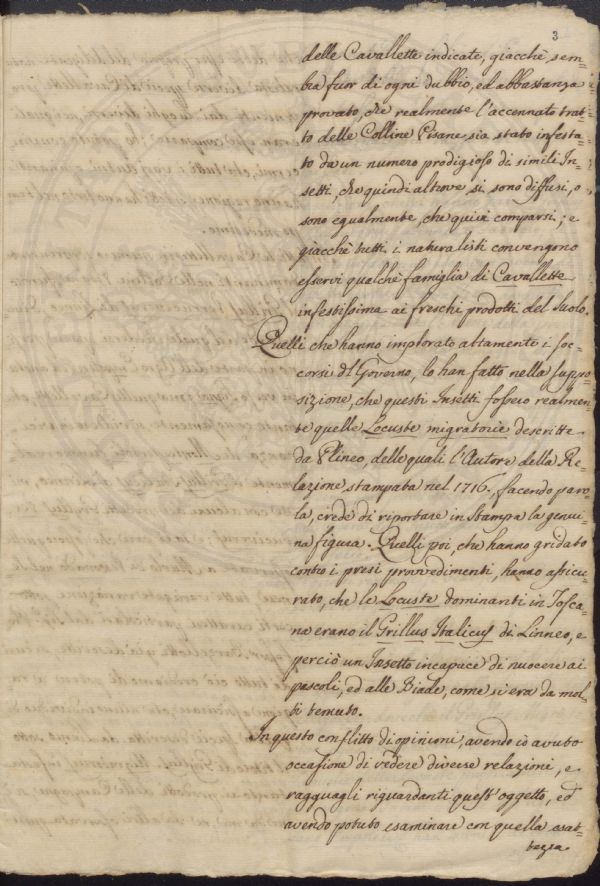 3
delle Cavallette indicate, giacchè, sem-
bra fuor di ogni dubbio, ed abbastanza
provato, che realmente l'accennato trat-
to delle Colline Pisane sia stato infesta-
to da un numero prodigioso di simili In-
setti, che quindi altrove si sono diffusi, o
sono egualmente, che quivi comparsi; e
giacchè tutti i naturalisti convengono
esservi qualche famiglia di Cavallette
infestissima ai freschi prodotti del Suolo.
Quelli che hanno implorato altamente i soc-
corsi dl Governo, lo han fatto nella suppo-
sizione, che questi Insetti fossero realmen-
te quelle Locuste migratorie descritte
da Plineo, delle quali l'Autore della Re-
lazione stampata nel 1716., facendo paro-
la, crede di riportare in Stampa la genui-
na figura. Quelli poi, che hanno gridato
contro i presi provvedimenti, hanno assicu-
rato, che le Locuste dominanti in Tosca-
na erano il Grillus Italicus di Linneo, e
perciò un Insetto incapace di nuocere ai
pascoli, ed alle Biade, come si era da mol-
ti temuto.
In questo conflitto di opinioni, avendo io avuto
occasione di vedere diverse relazioni, e
ragguagli riguardanti quest'oggetto, ed
avendo potuto esaminare con quella esat-
tezza